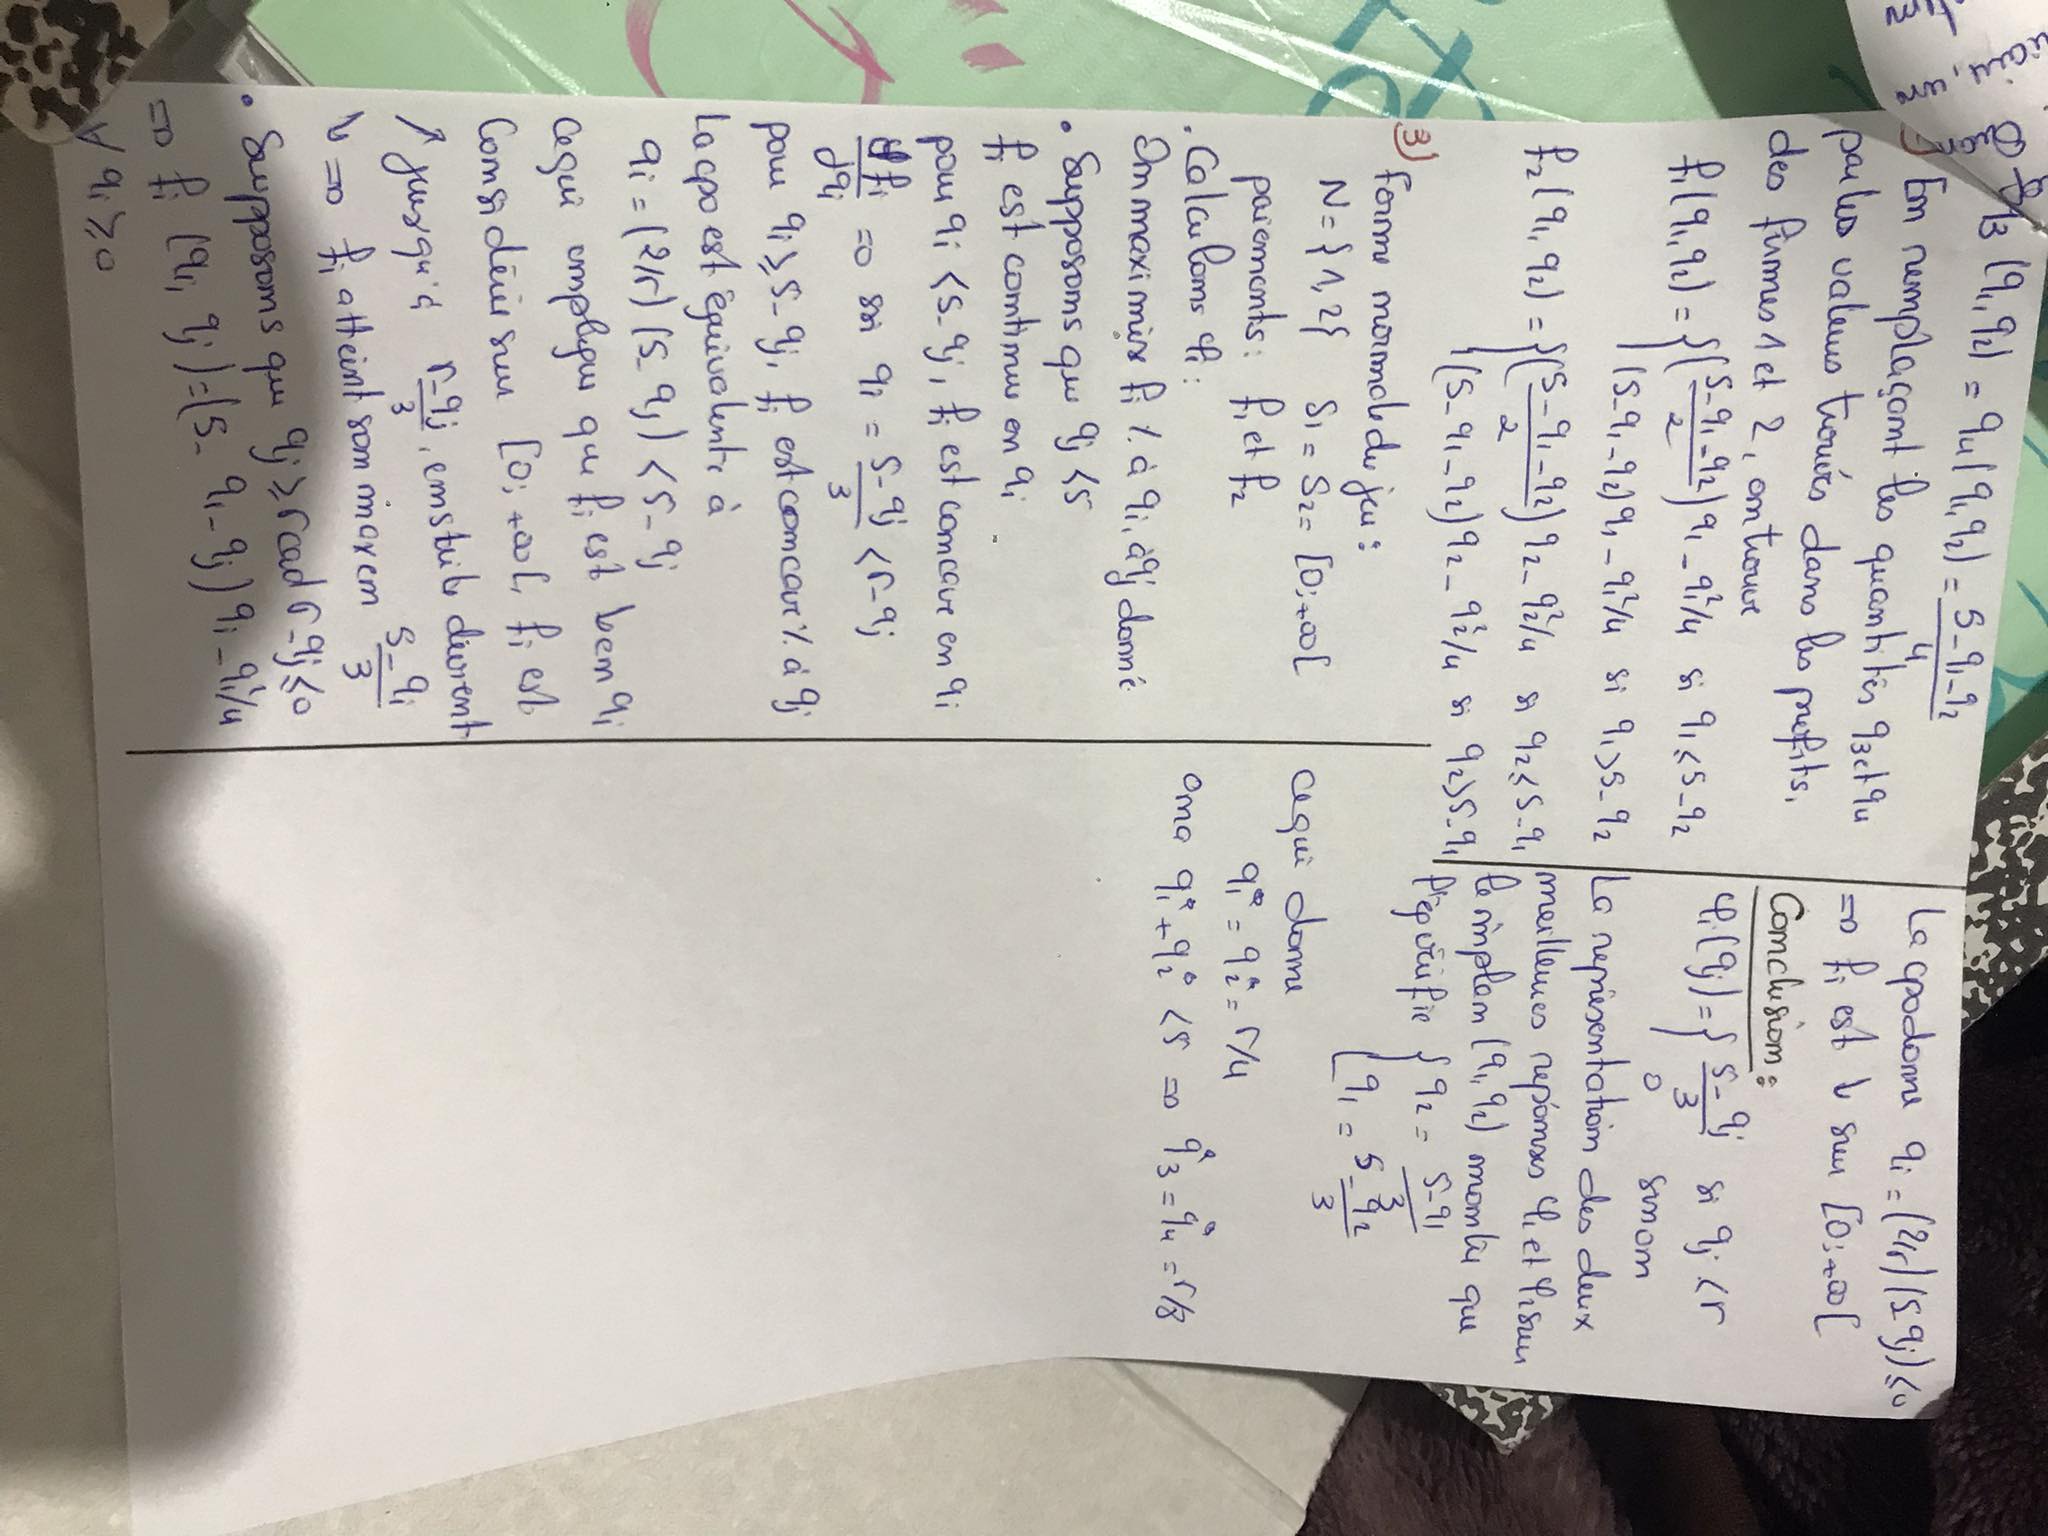 q3 (q1, q2) = q4 (q1, q2) = (5 - q1 - q2)/4
2) En remplaçant les quantités q3 et q4
par les valeurs trouvées dans les profits,
des firmes 1 et 2, on trouve
f1 (q1, q2) = { ((5 - q1 - q2)/2) q1 - q1²/4 si q1 ≤ 5 - q2
(5 - q1 - q2) q1 - q1²/4 si q1 > 5 - q2
f2 (q1, q2) = { ((5 - q1 - q2)/2) q2 - q2²/4 si q2 ≤ 5 - q1
(5 - q1 - q2) q2 - q2²/4 si q2 > 5 - q1
3) Forme normale du jeu :
N = {1, 2} S1 = S2 = [0; +∞[
paiements : f1 et f2
• Calculons φi :
On maximise fi % à qi, à qj donné
• Supposons que qj < 5
fi est continue en qi
pour qi < 5 - qj, fi est concave en qi
∂fi/∂qi = 0 si qi = (5 - qj)/3 < 5 - qj
pour qi ≥ 5 - qj, fi est concave % à qj
La cpo est équivalente à
qi = (2/5) (5 - qj) < 5 - qj
ce qui implique que fi est ↘ en qi
Considérée sur [0; +∞[, fi est
↗ jusqu'à (5 - qj)/3, ensuite devient
↘ => fi atteint son max en (5 - qi)/3
• Supposons que qj ≥ 5 cad 5 - qj ≤ 0
=> fi (qi, qj) = (5 - qi - qj) qi - qi²/4
∀ qi ≥ 0
La cpo donne qi = (2/5) (5 - qj) ≤ 0
=> fi est ↘ sur [0; +∞[
Conclusion :
φi (qj) = { (5 - qj)/3 si qj < 5
0 sinon
La représentation des deux
meilleures réponses φ1 et φ2 sur
le même plan (q1, q2) montre que
l'éq vérifie { q2 = (5 - q1)/3
q1 = (5 - q2)/3
ce qui donne
q1* = q2* = 5/4
on a q1* + q2* < 5 => q3* = q4* = 5/8